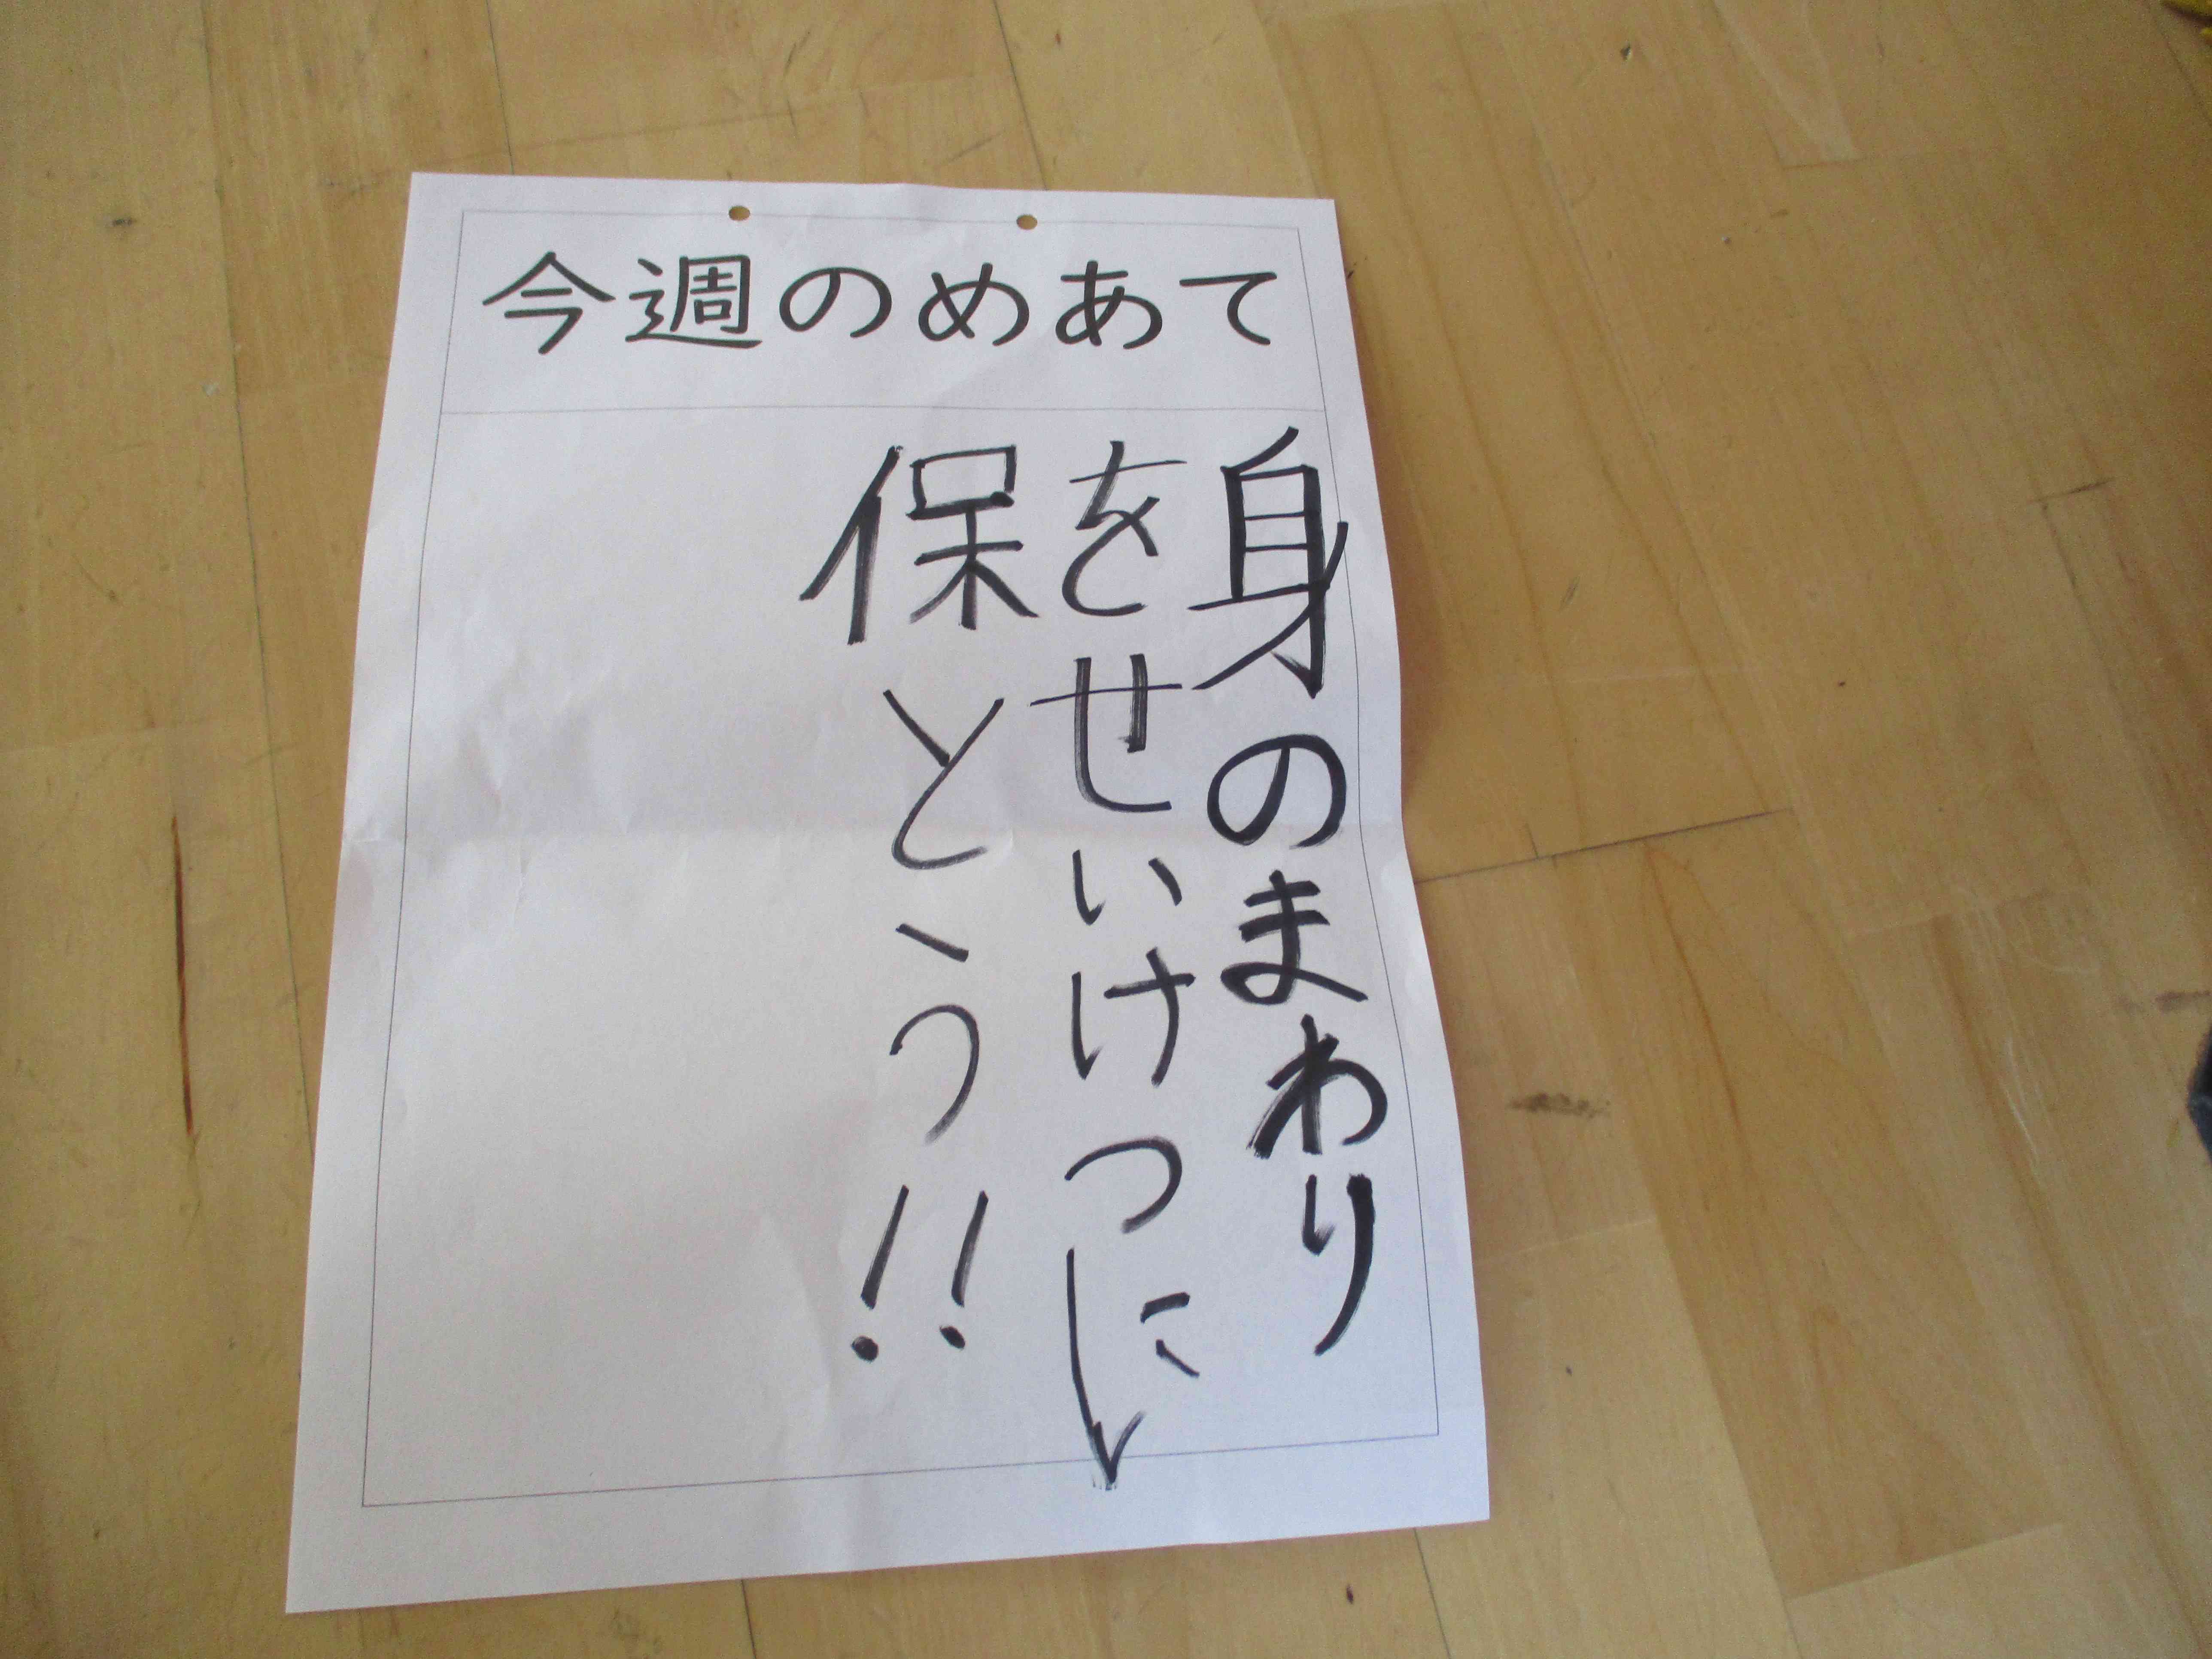 今週のめあて
身のまわり
をせいけつに
保とう!!